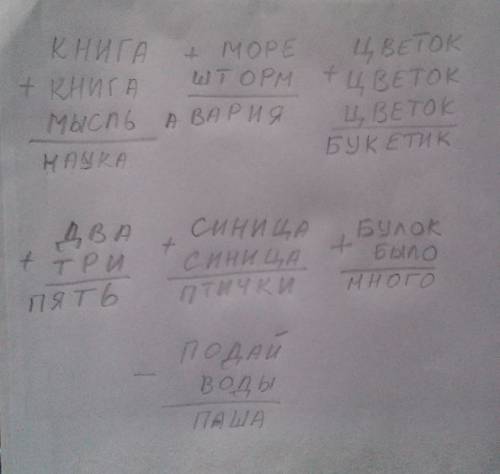 КНИГА
+ КНИГА
МЫСЛЬ
НАУКА
+ МОРЕ
ШТОРМ
АВАРИЯ
ЦВЕТОК
+ ЦВЕТОК
ЦВЕТОК
БУКЕТИК
ДВА
+ ТРИ
ПЯТЬ
СИНИЦА
+ СИНИЦА
ПТИЧКИ
БУЛОК
+ БЫЛО
МНОГО
ПОДАЙ
- ВОДЫ
ПАША